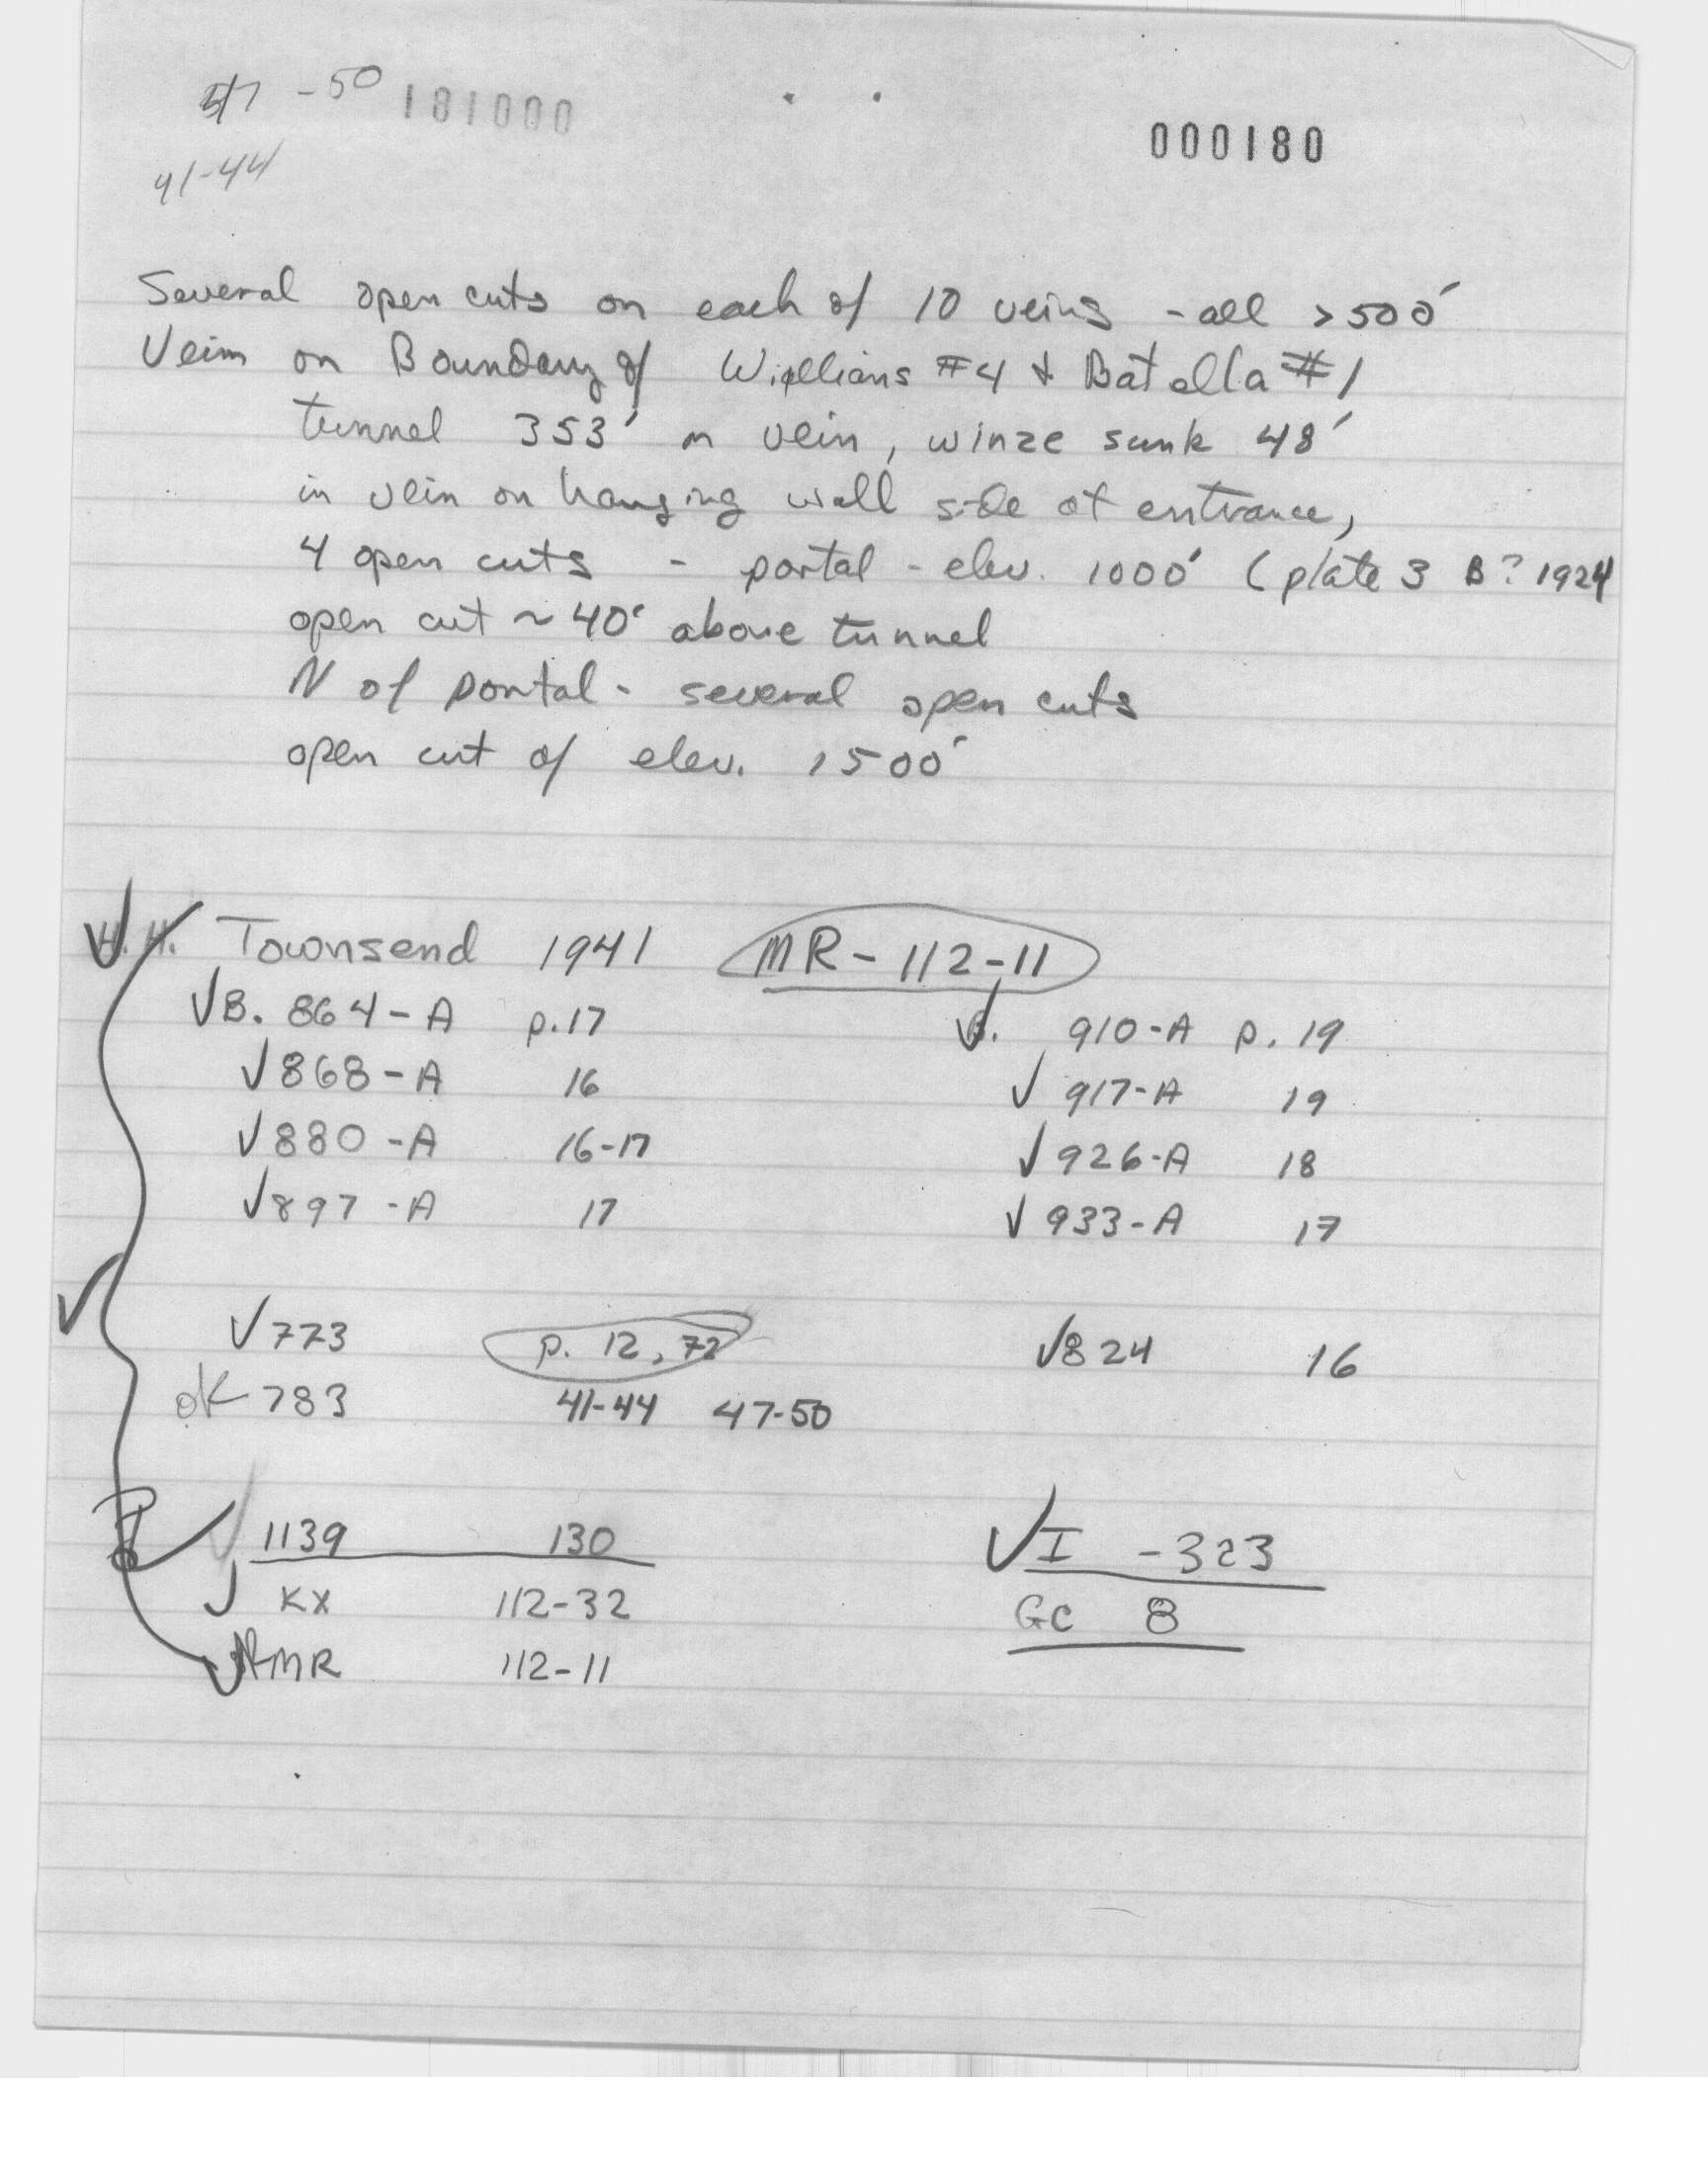 47 -50 181000
000180
41-44
Several open cuts on each of 10 veins - all >500'
Vein on Boundary of Williams #4 & Batella #1
tunnel 353' on vein, winze sunk 48'
in vein on hanging wall side at entrance,
4 open cuts - portal - elev. 1000' (plate 3 B? 1924
open cut ~ 40' above tunnel
N of portal - several open cuts
open cut of elev. 1500'
H. H. Townsend 1941 MR-112-11
√B. 864-A p.17 √B. 910-A p. 19
√868-A 16 √917-A 19
√880-A 16-17 √926-A 18
√897-A 17 √933-A 17
√773 p. 12, 72 √824 16
OK 783 41-44 47-50
√1139 130 √I -323
√KX 112-32 GC 8
√MR 112-11